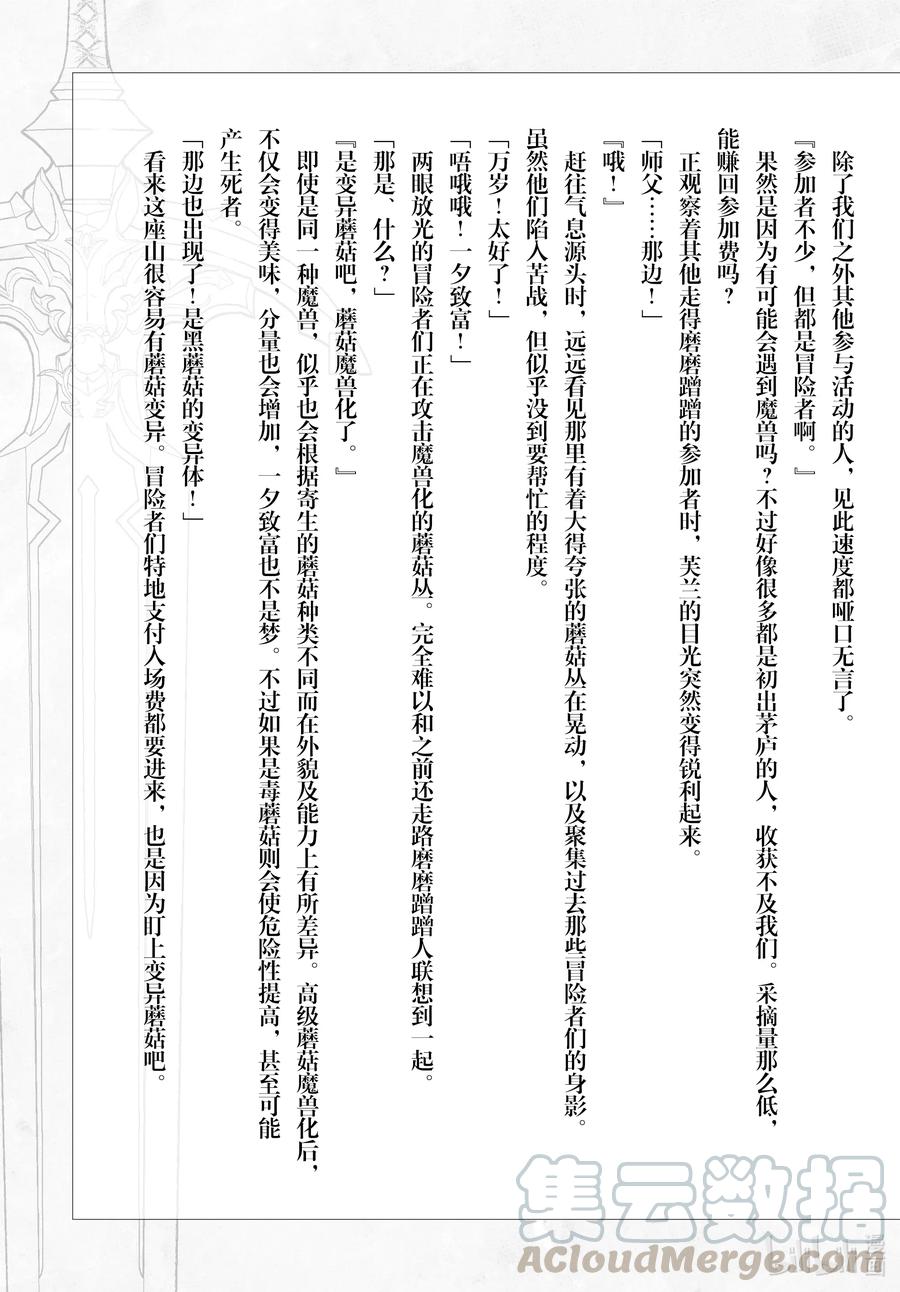 除了我们之外其他参与活动的人，见此速度都哑口无言了。
『参加者不少，但都是冒险者啊。』
果然是因为有可能会遇到魔兽吗？不过好像很多都是初出茅庐的人，收获不及我们。采摘量那么低，
能赚回参加费吗？
正观察着其他走得磨磨蹭蹭的参加者时，芙兰的目光突然变得锐利起来。
「师父……那边！」
『哦！』
赶往气息源头时，远远看见那里有着大得夸张的蘑菇丛在晃动，以及聚集过去那些冒险者们的身影。
虽然他们陷入苦战，但似乎没到要帮忙的程度。
「万岁！太好了！」
「唔哦哦！一夕致富！」
两眼放光的冒险者们正在攻击魔兽化的蘑菇丛。完全难以和之前还走路磨磨蹭蹭人联想到一起。
「那是、什么？」
『是变异蘑菇吧，蘑菇魔兽化了。』
即使是同一种魔兽，似乎也会根据寄生的蘑菇种类不同而在外貌及能力上有所差异。高级蘑菇魔兽化后，
不仅会变得美味，分量也会增加，一夕致富也不是梦。不过如果是毒蘑菇则会使危险性提高，甚至可能
产生死者。
「那边也出现了！是黑蘑菇的变异体！」
看来这座山很容易有蘑菇变异。冒险者们特地支付入场费都要进来，也是因为盯上变异蘑菇吧。
集云数据
ACloudMerge.com